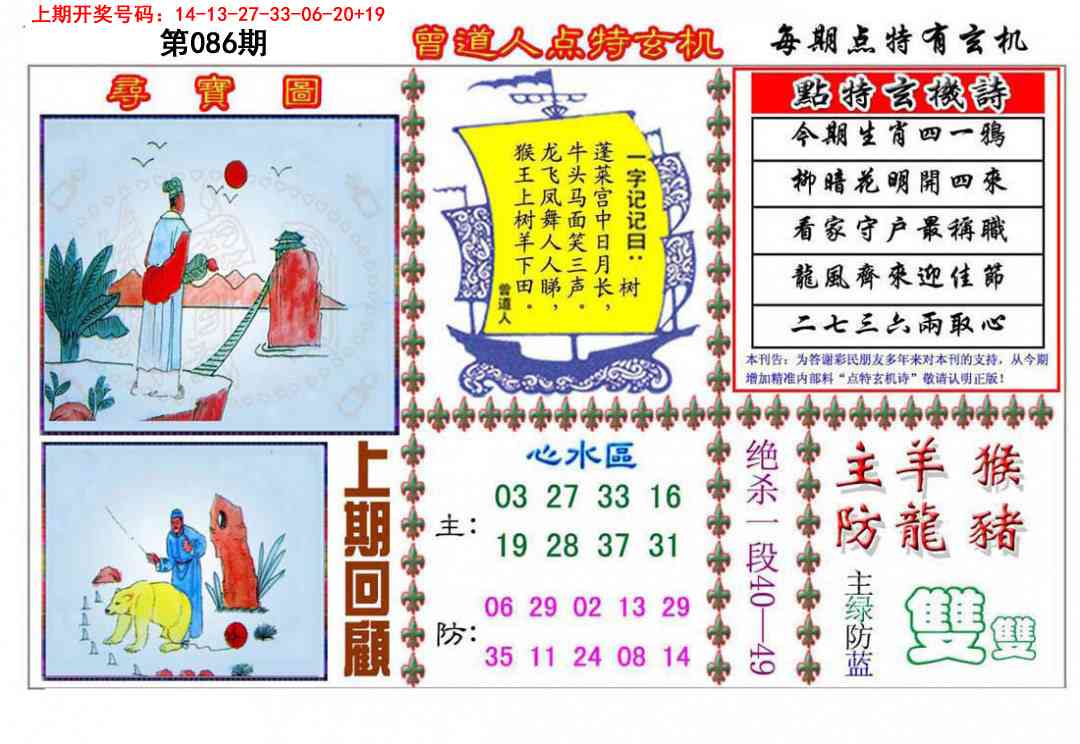 上期开奖号码：14-13-27-33-06-20+19
第086期
曾道人点特玄机
每期点特有玄机
尋寶圖
一字记记曰：树
蓬莱宫中日月长，
牛头马面笑三声。
龙飞凤舞人人睇，
猴王上树羊下田。
曾道人
點特玄機詩
今期生肖四一鴉
柳暗花明開四來
看家守户最稱職
龍風齊來迎佳節
二七三六兩取心
本刊告：为答谢彩民朋友多年来对本刊的支持，从今期
增加精准内部料“点特玄机诗”敬请认明正版！
上期回顧
心水區
主：
03 27 33 16
19 28 37 31
防：
06 29 02 13 29
35 11 24 08 14
绝杀一段40—49
主羊猴
防龍豬
主绿防蓝
雙雙